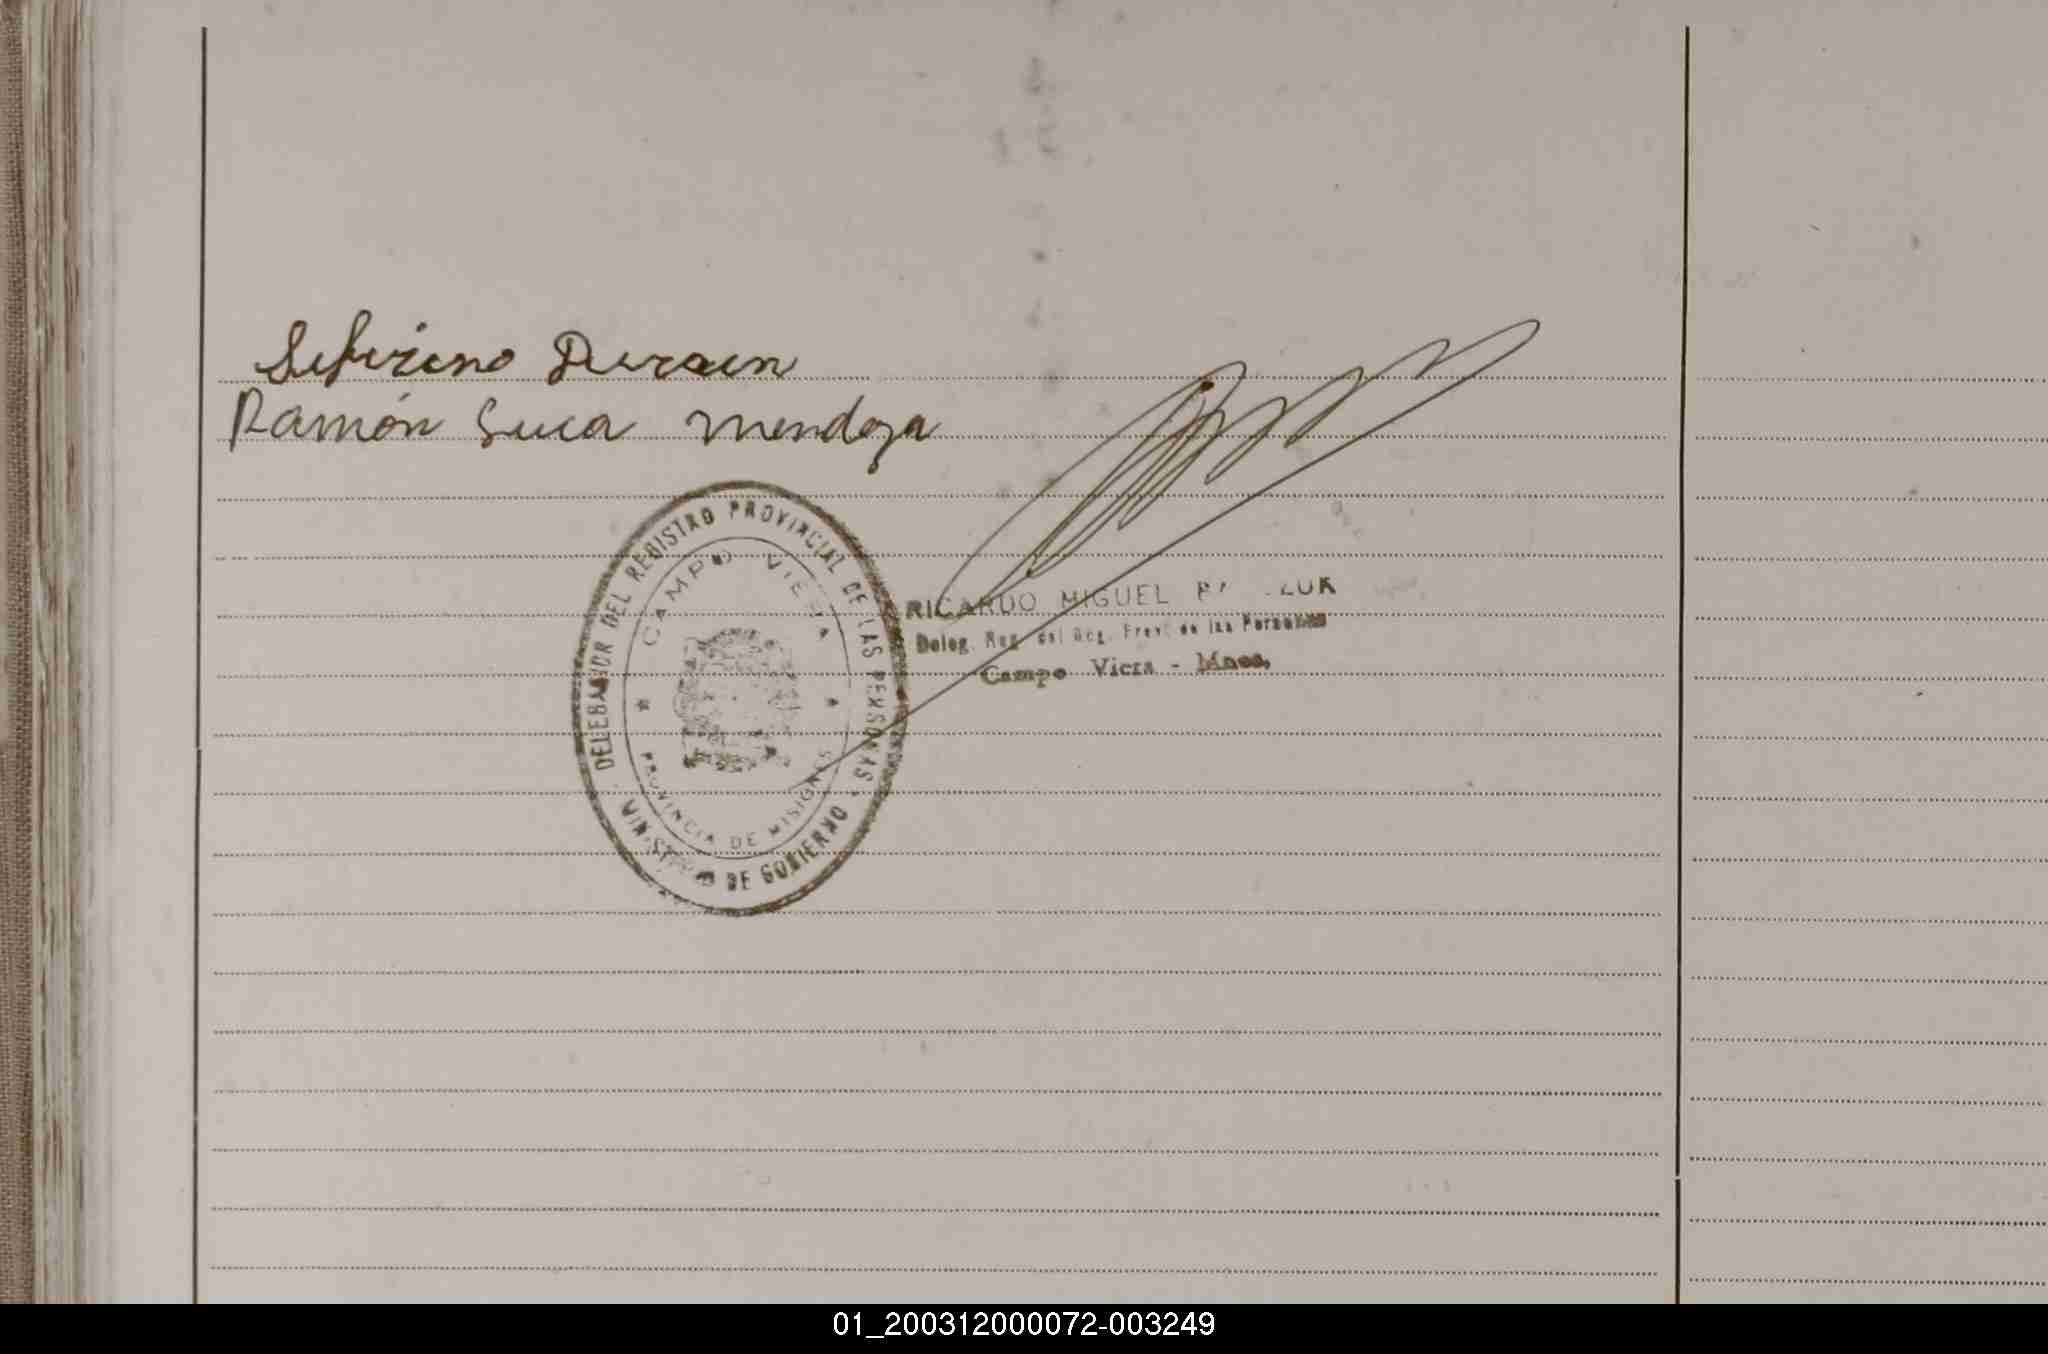 Seferino Duraen
Ramón Luca Mendoza
DELEGADOR DEL REGISTRO PROVINCIAL DE LAS PERSONAS
CAMPO VIERA
PROVINCIA DE MISIONES
MINISTERIO DE GOBIERNO
RICARDO MIGUEL
Deleg. Reg. del Reg. Prov. de las Personas
Campo Viera - Mnes.
01_200312000072-003249